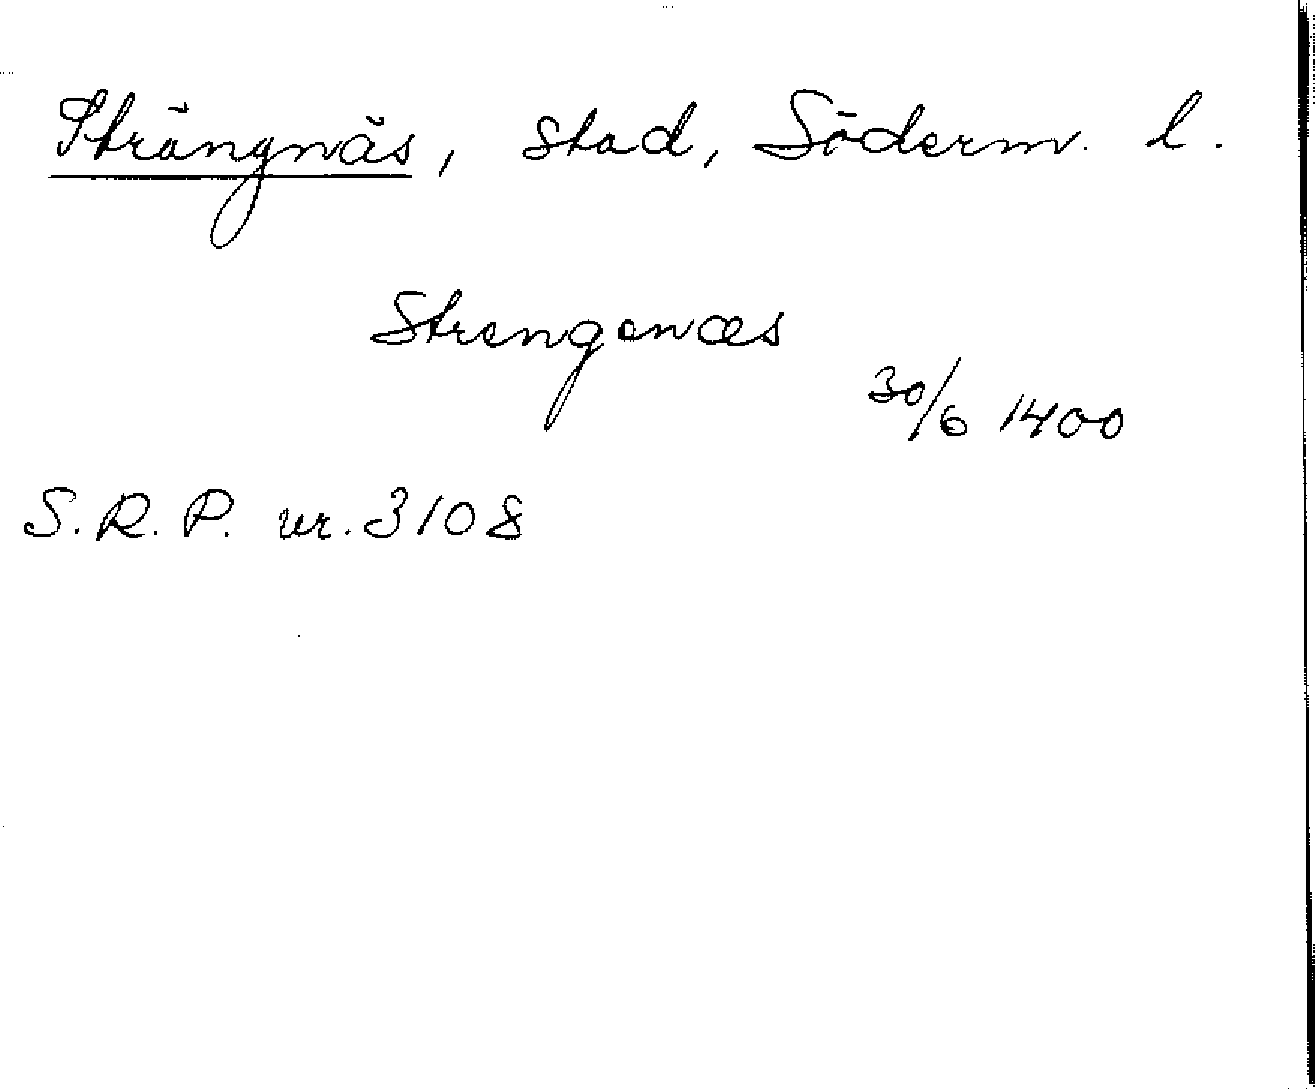 Strängnäs, stad, Söderm. l.
Strengenæs
30/6 1400
S.R.P. nr. 3108